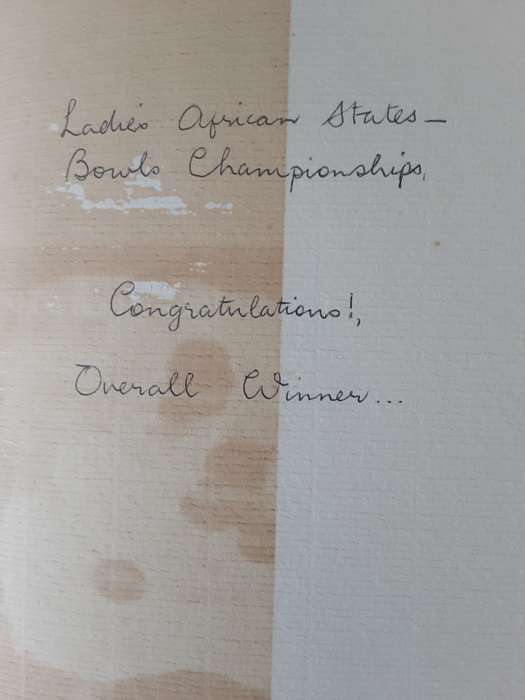 Ladie's African States -
Bowls Championships,
Congratulations!,
Overall Winner...